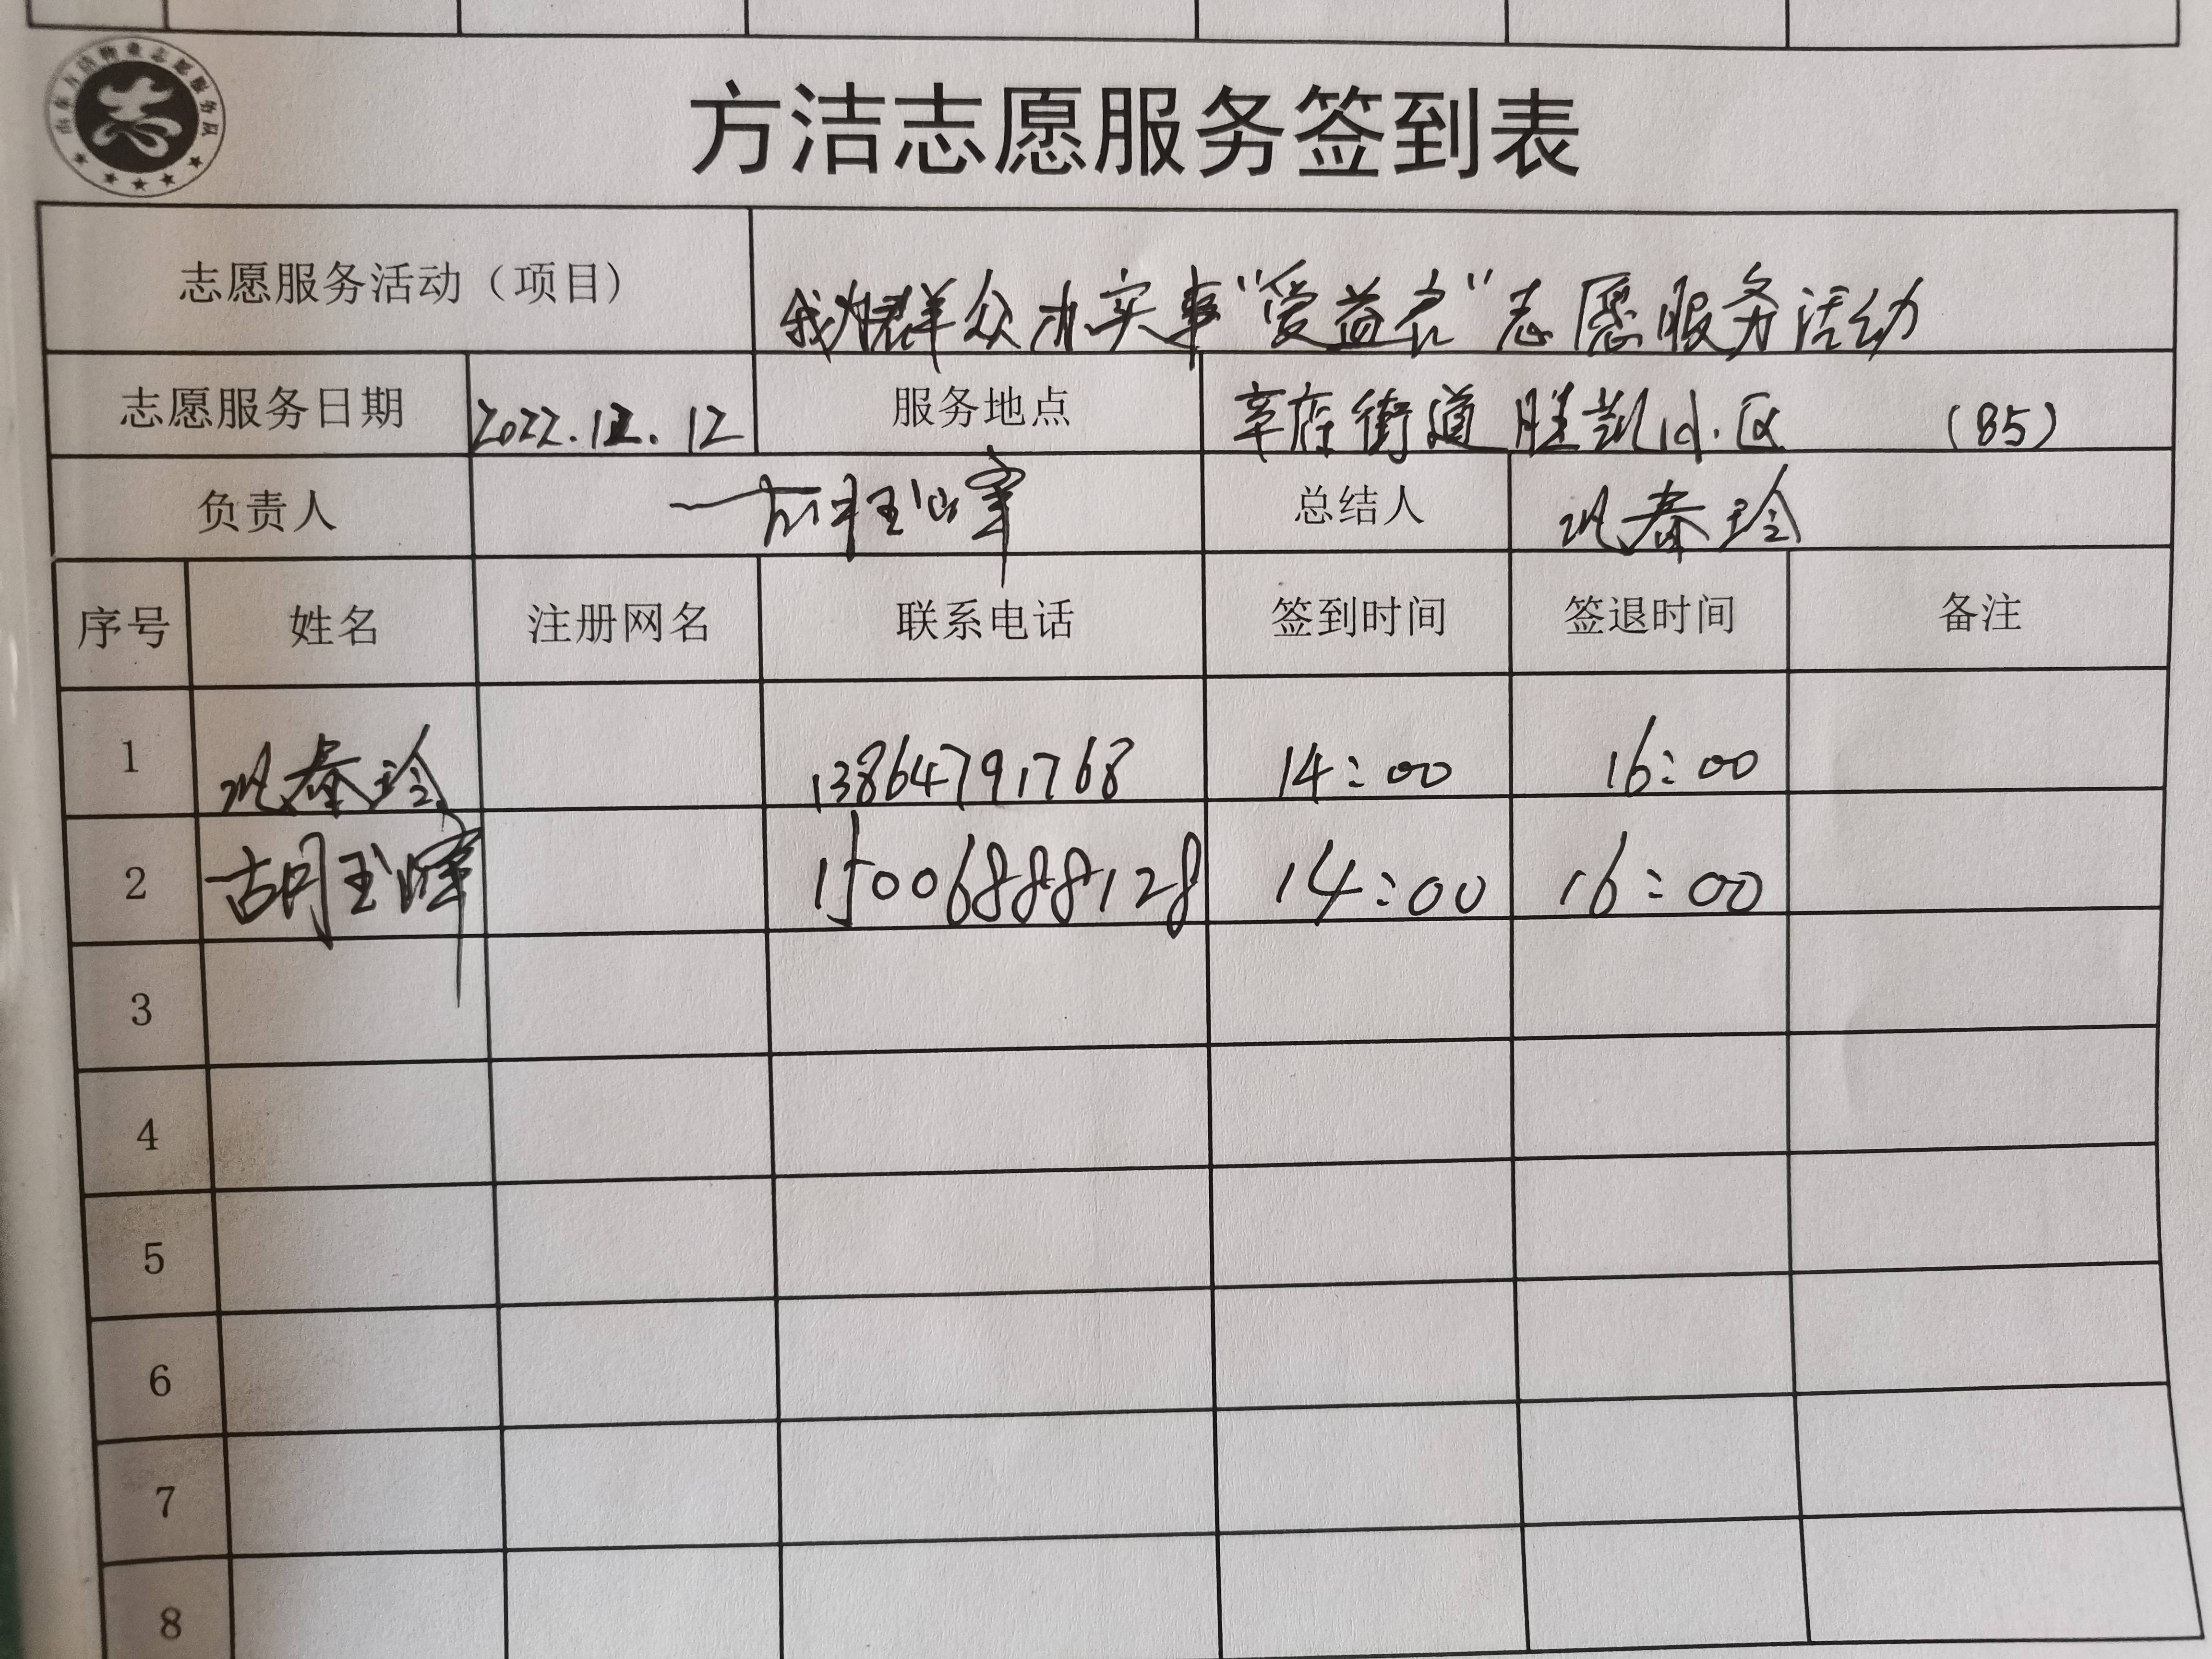 山东方洁物业志愿服务队
志
方洁志愿服务签到表
志愿服务活动（项目） 我为群众办实事“爱益衣”志愿服务活动
志愿服务日期 2022.12.12 服务地点 辛店街道胜凯小区 (85)
负责人 胡玉晖 总结人 巩泰玲
序号 姓名 注册网名 联系电话 签到时间 签退时间 备注
1 巩泰玲 13864791768 14:00 16:00
2 胡玉晖 15006888128 14:00 16:00
3
4
5
6
7
8